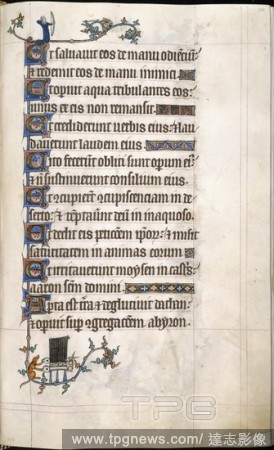 Et salvavit eos de manu odientiu
& redemit eos de manu inimici
Et operuit aqua tribulantes eos:
unus ex eis non remansit
Et crediderunt verbis eius: & lau
daverunt laudem eius
Cito fecerunt obliti sunt operum ei
& n sustinuerunt consilium eius
Et cupierunt cupiscenciam in de
serto: & temptaverunt deu in inaquoso
Et dedit eis peticionem ipsor: & misit
saturitatem in animas eorum
Et irritaverunt moysen in castris:
aaron scm domini
Aperta est tra & deglutivit dathan:
& operuit sup gregacionem abyron
TPG
www.tpgnews.com/達志影像